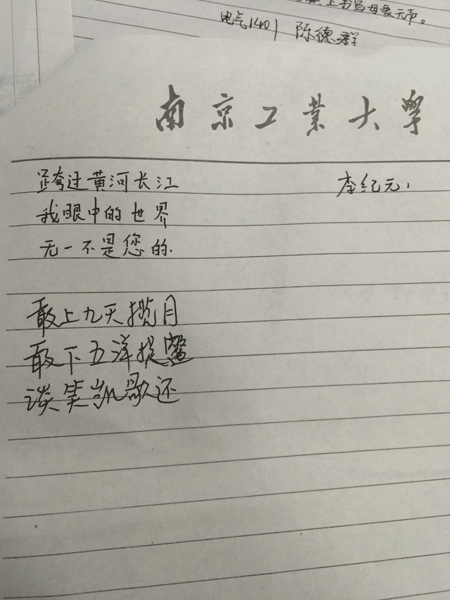 电气1401 陈德群
南京工业大学
跨过黄河长江 李纪元
我眼中的世界
无一不是您的.
敢上九天揽月
敢下五洋捉鳖
谈笑凯歌还